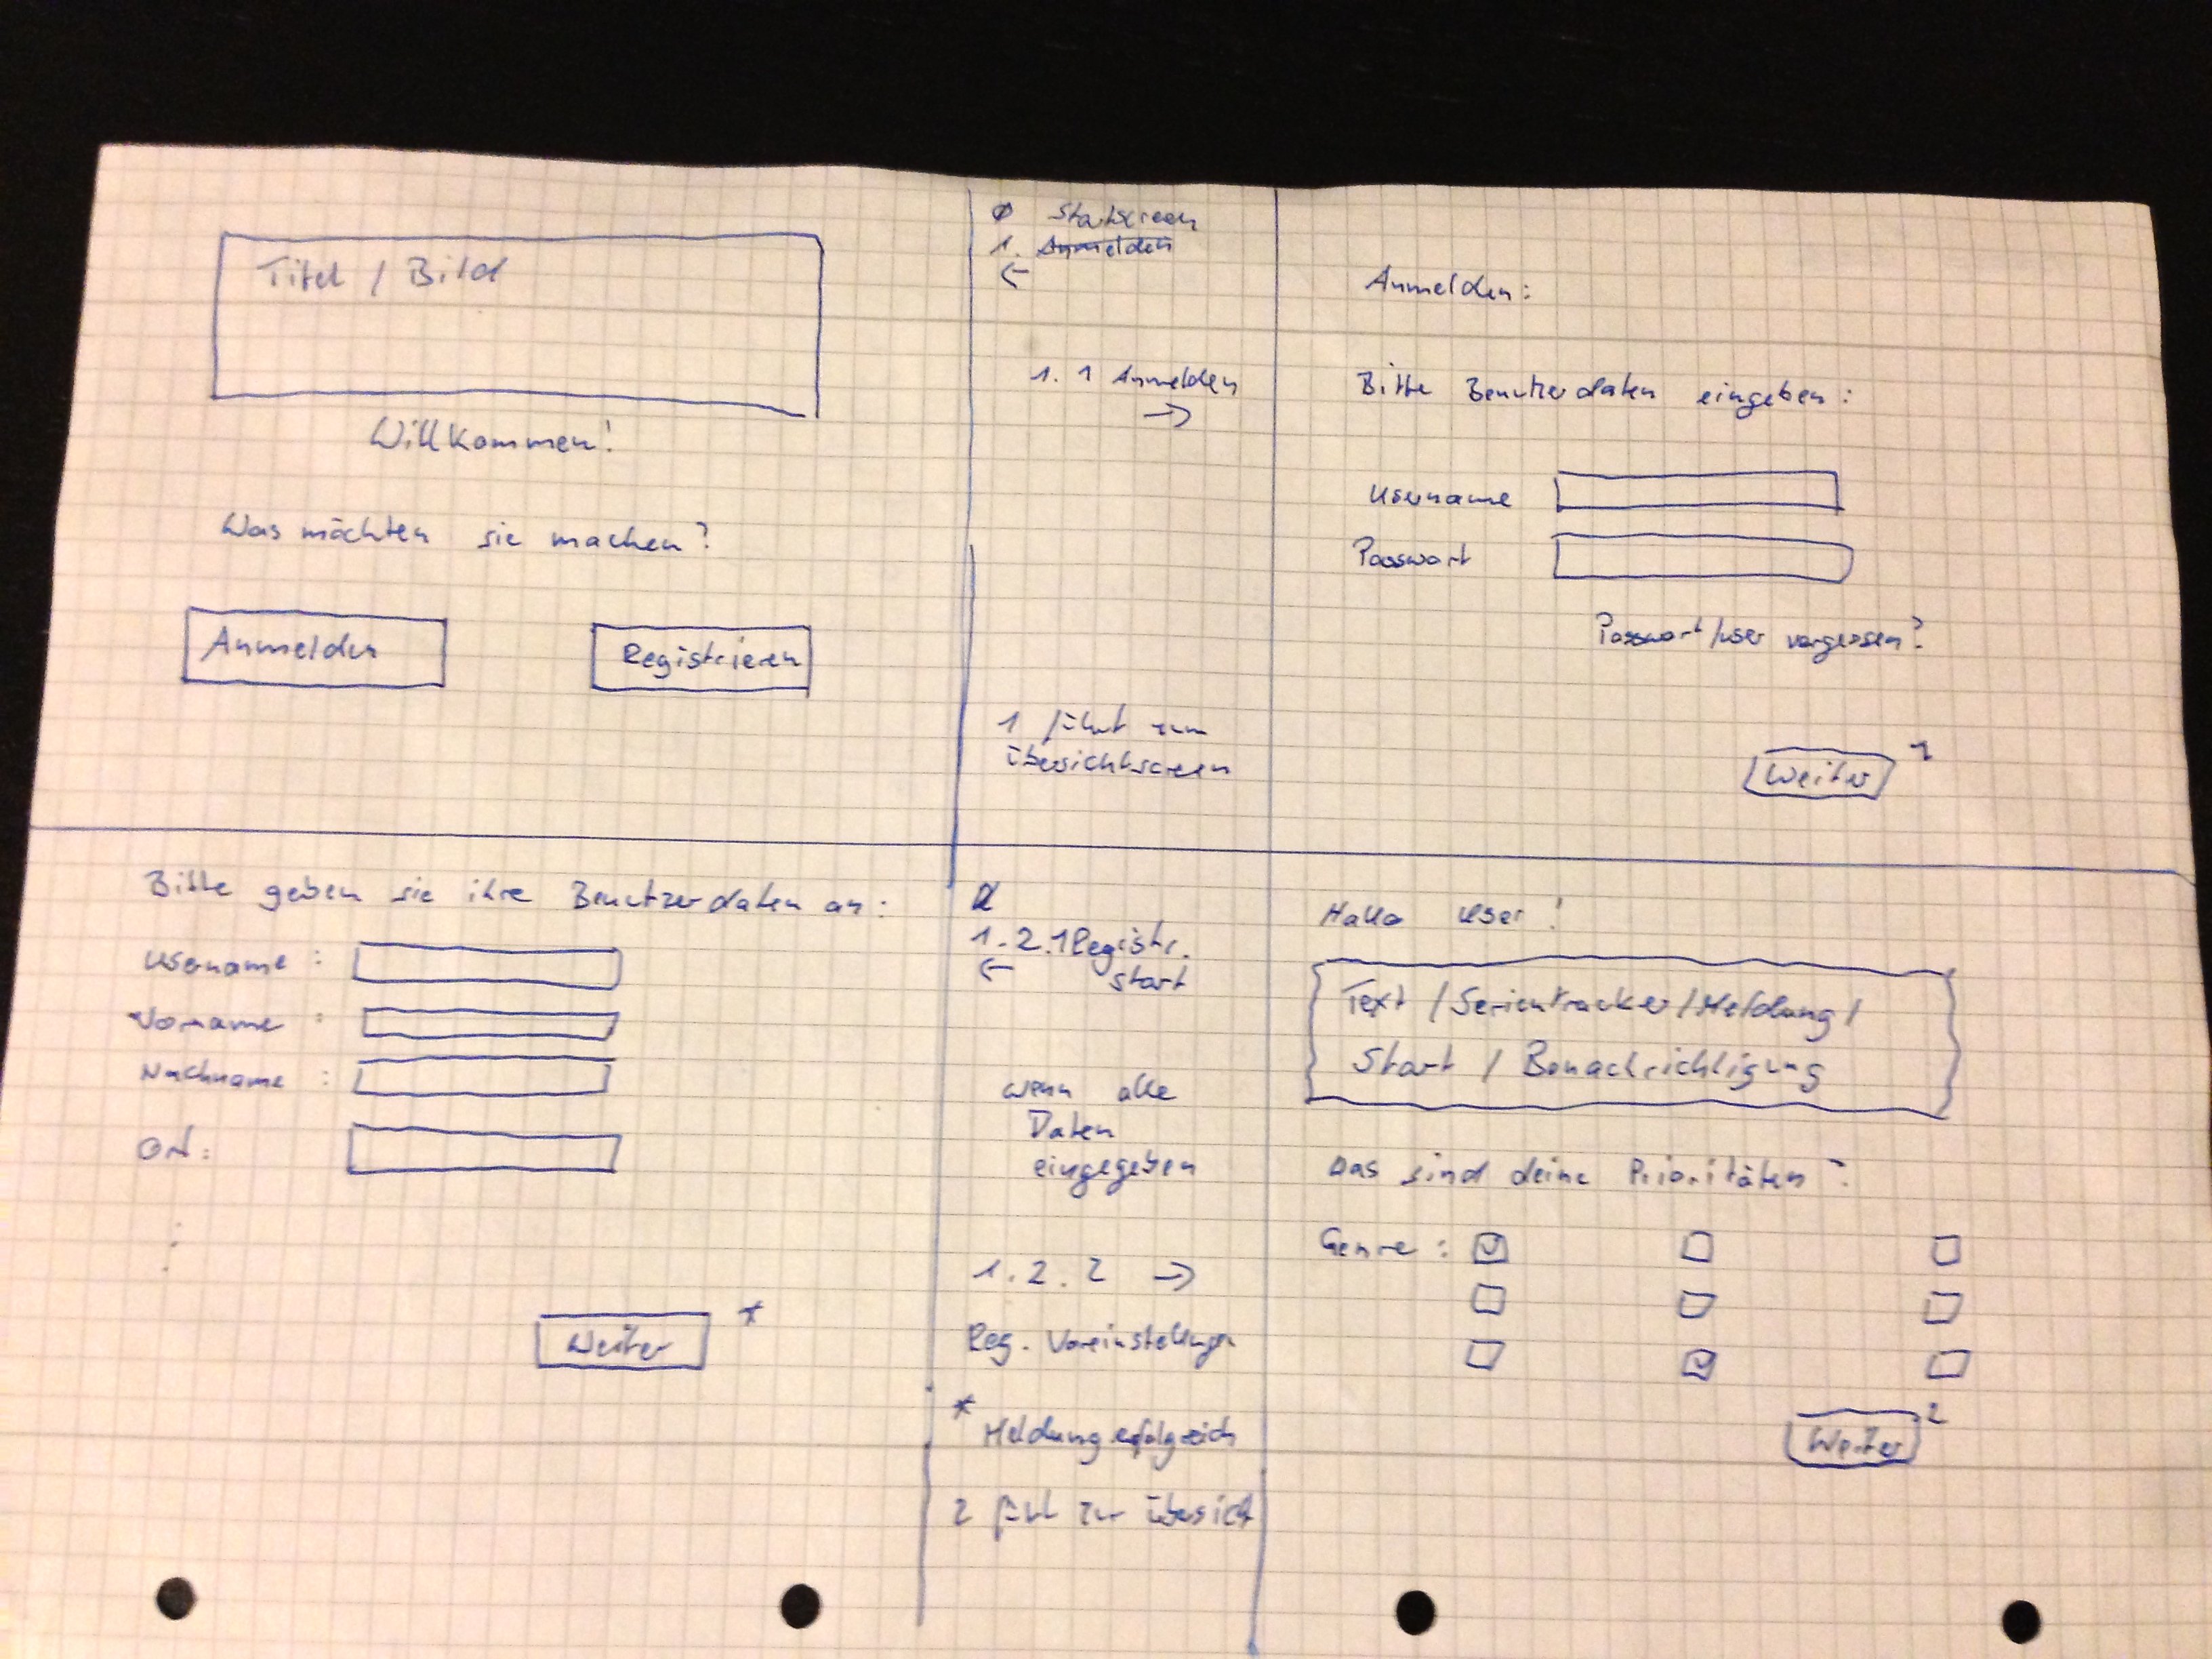 Titel / Bild
Willkommen!
Was möchten sie machen?
Anmelden
Registrieren
Ø Startscreen
1. Anmelden
←
1.1 Anmelden
→
1 führt zum
übersichtscreen
Anmelden:
Bitte Benutzerdaten eingeben:
Username
Passwort
Passwort/user vergessen?
Weiter 1
Bitte geben sie ihre Benutzerdaten an:
Username :
Vorname :
Nachname :
Ort:
Weiter *
1.2.1 Registr.
← start
wenn alle
Daten
eingegeben
1.2.2 →
Reg. Voreinstellungen
* Meldung erfolgreich
2 führt zur übersicht
Hallo User!
Text / Serientracker / Meldung /
Start / Benachrichtigung
Das sind deine Prioritäten?
Genre :
Weiter 2